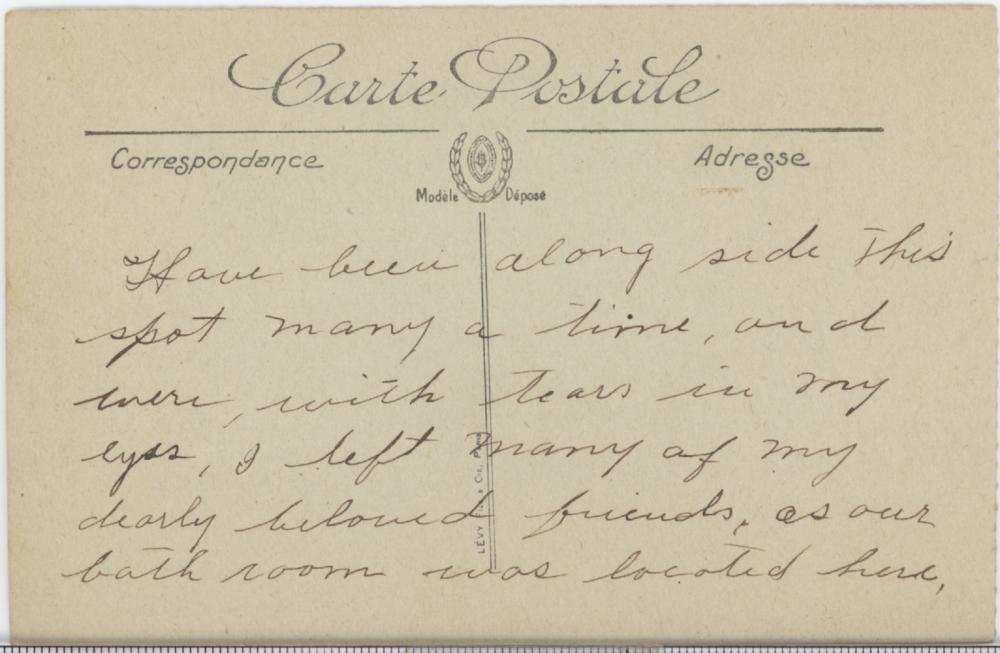 Carte Postale
Correspondance
Adresse
Modèle Déposé
Have been along side this
spot many a time, and
were, with tears in my
eyes, I left many of my
dearly beloved friends, as our
bath room was located here,
LÉVY FILS & Cie, PARIS